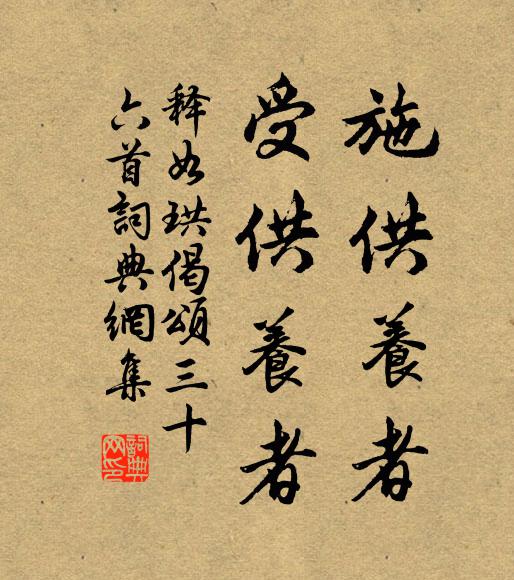 施供養者
受供養者
释如珙偈頌三十
六首詞典網集
詞典网印